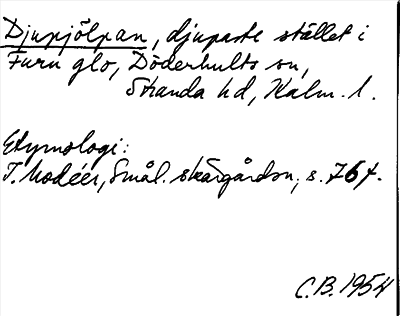 Djupjölpan, djupaste stället i
Furu glo, Döderhults sn,
Stranda hd, Kalm. l.
Etymologi:
I. Modéer, Smål. skärgårdsn., s. 76 f.
C.B. 1954